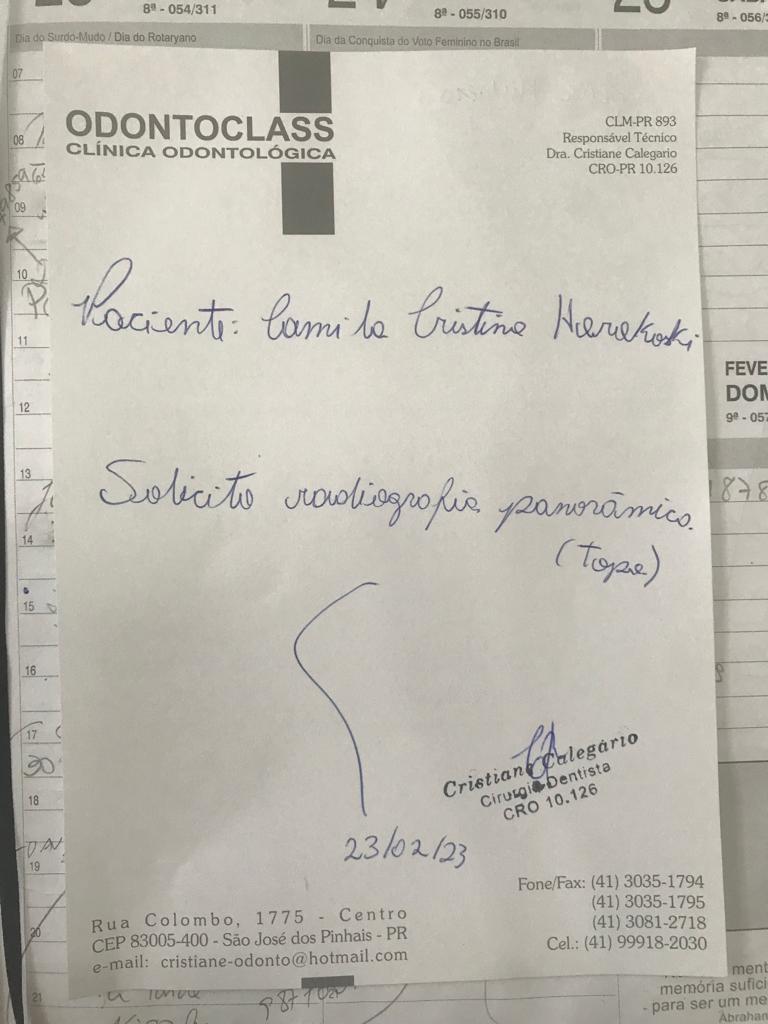 8ª - 054/311
8ª - 055/310
8ª - 056/3
Dia do Surdo-Mudo / Dia do Rotaryano
Dia da Conquista do Voto Feminino no Brasil
07
08
09
10
11
12
13
14
15
16
17
18
19
20
21
ODONTOCLASS
CLÍNICA ODONTOLÓGICA
CLM-PR 893
Responsável Técnico
Dra. Cristiane Calegario
CRO-PR 10.126
Paciente: Camila Cristina Harakoski
FEVE
DOM
9ª - 057
1878
Solicito radiografia panorâmica.
(Topa)
Cristiane Calegário
Cirurgiã Dentista
CRO 10.126
23/02/23
Rua Colombo, 1775 - Centro
CEP 83005-400 - São José dos Pinhais - PR
e-mail: cristiane-odonto@hotmail.com
Fone/Fax: (41) 3035-1794
(41) 3035-1795
(41) 3081-2718
Cel.: (41) 99918-2030
ment
memória sufici
- para ser um me
Abraham